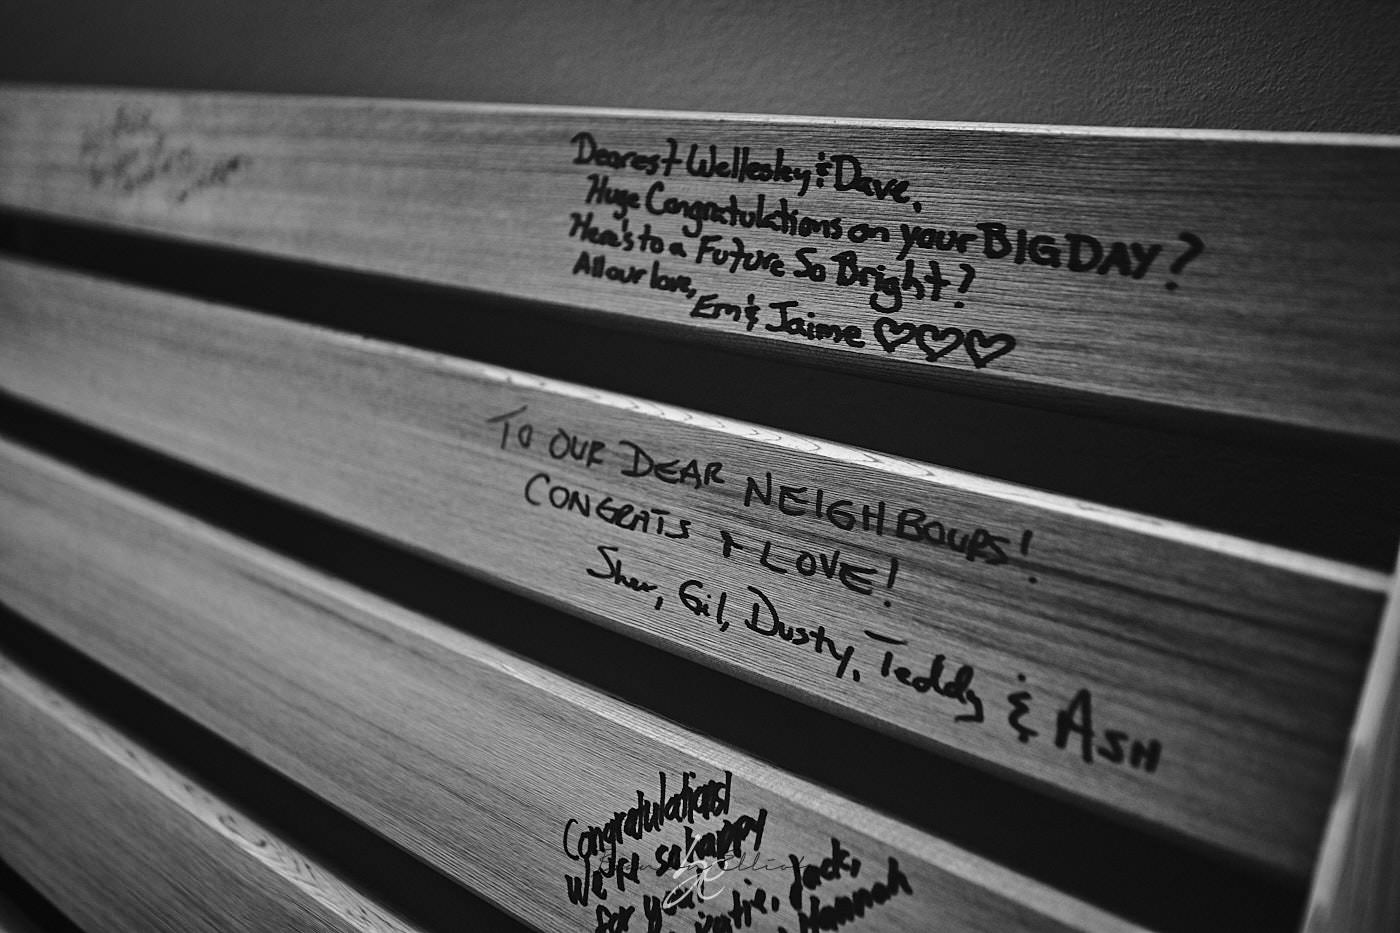 Dearest Wellesley & Dave,
Huge Congratulations on your BIG DAY?
Here's to a Future So Bright?
All our love,
Em & Jaime ♡♡♡
TO OUR DEAR NEIGHBOURS!
CONGRATS & LOVE!
Sher, Gil, Dusty, Teddy & ASH
Congratulations!
We're so happy
for you! Jack,
Hannah